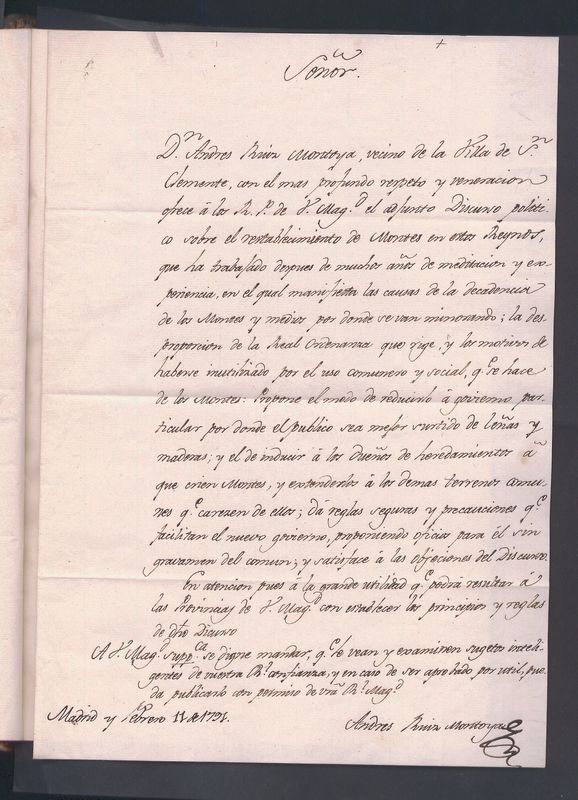 +
Señor.
Dn. Andres Ruiz Montoya, vecino de la Villa de Sn.
Clemente, con el mas profundo respeto y veneracion
ofrece á los R. P. de V. Magd. el adjunto Discurso politi-
co sobre el restablecimiento de Montes en estos Reynos,
que ha trabajado despues de muchos años de meditacion y ex-
periencia, en el qual manifiesta las causas de la decadencia
de los Montes y medios por donde se van minorando; la des-
proporcion de la Real Ordenanza que rige, y los motivos de
haberse inutilizado por el uso comunero y social, qe. se hace
de los Montes: Propone el modo de reducirlo á govierno par-
ticular por donde el publico sea mejor surtido de leñas y
maderas; y el de inducir á los dueños de heredamientos á
que crien Montes, y extenderlos á los demas terrenos comu-
nes qe. carezen de ellos; dá reglas seguras y precauciones qe.
facilitan el nuevo govierno, proponiendo oficia para él sin
gravamen del comun; y satisface á las objeciones del Discurso.
En atencion pues á la grande utilidad qe. podrá resultar á
las Provincias de V. Magd. con establecer los principios y reglas
de dho Dicurso
A V. Magd. suppca. se digne mandar, qe. le vean y examinen sugetos inteli-
gentes de vuestra Rl. confianza, y en caso de ser aprobado, por util, pue-
da publicarlo con permiso de vra Rl. Magd.
Madrid y Febrero 11 de 1791.
Andres Ruiz Montoya